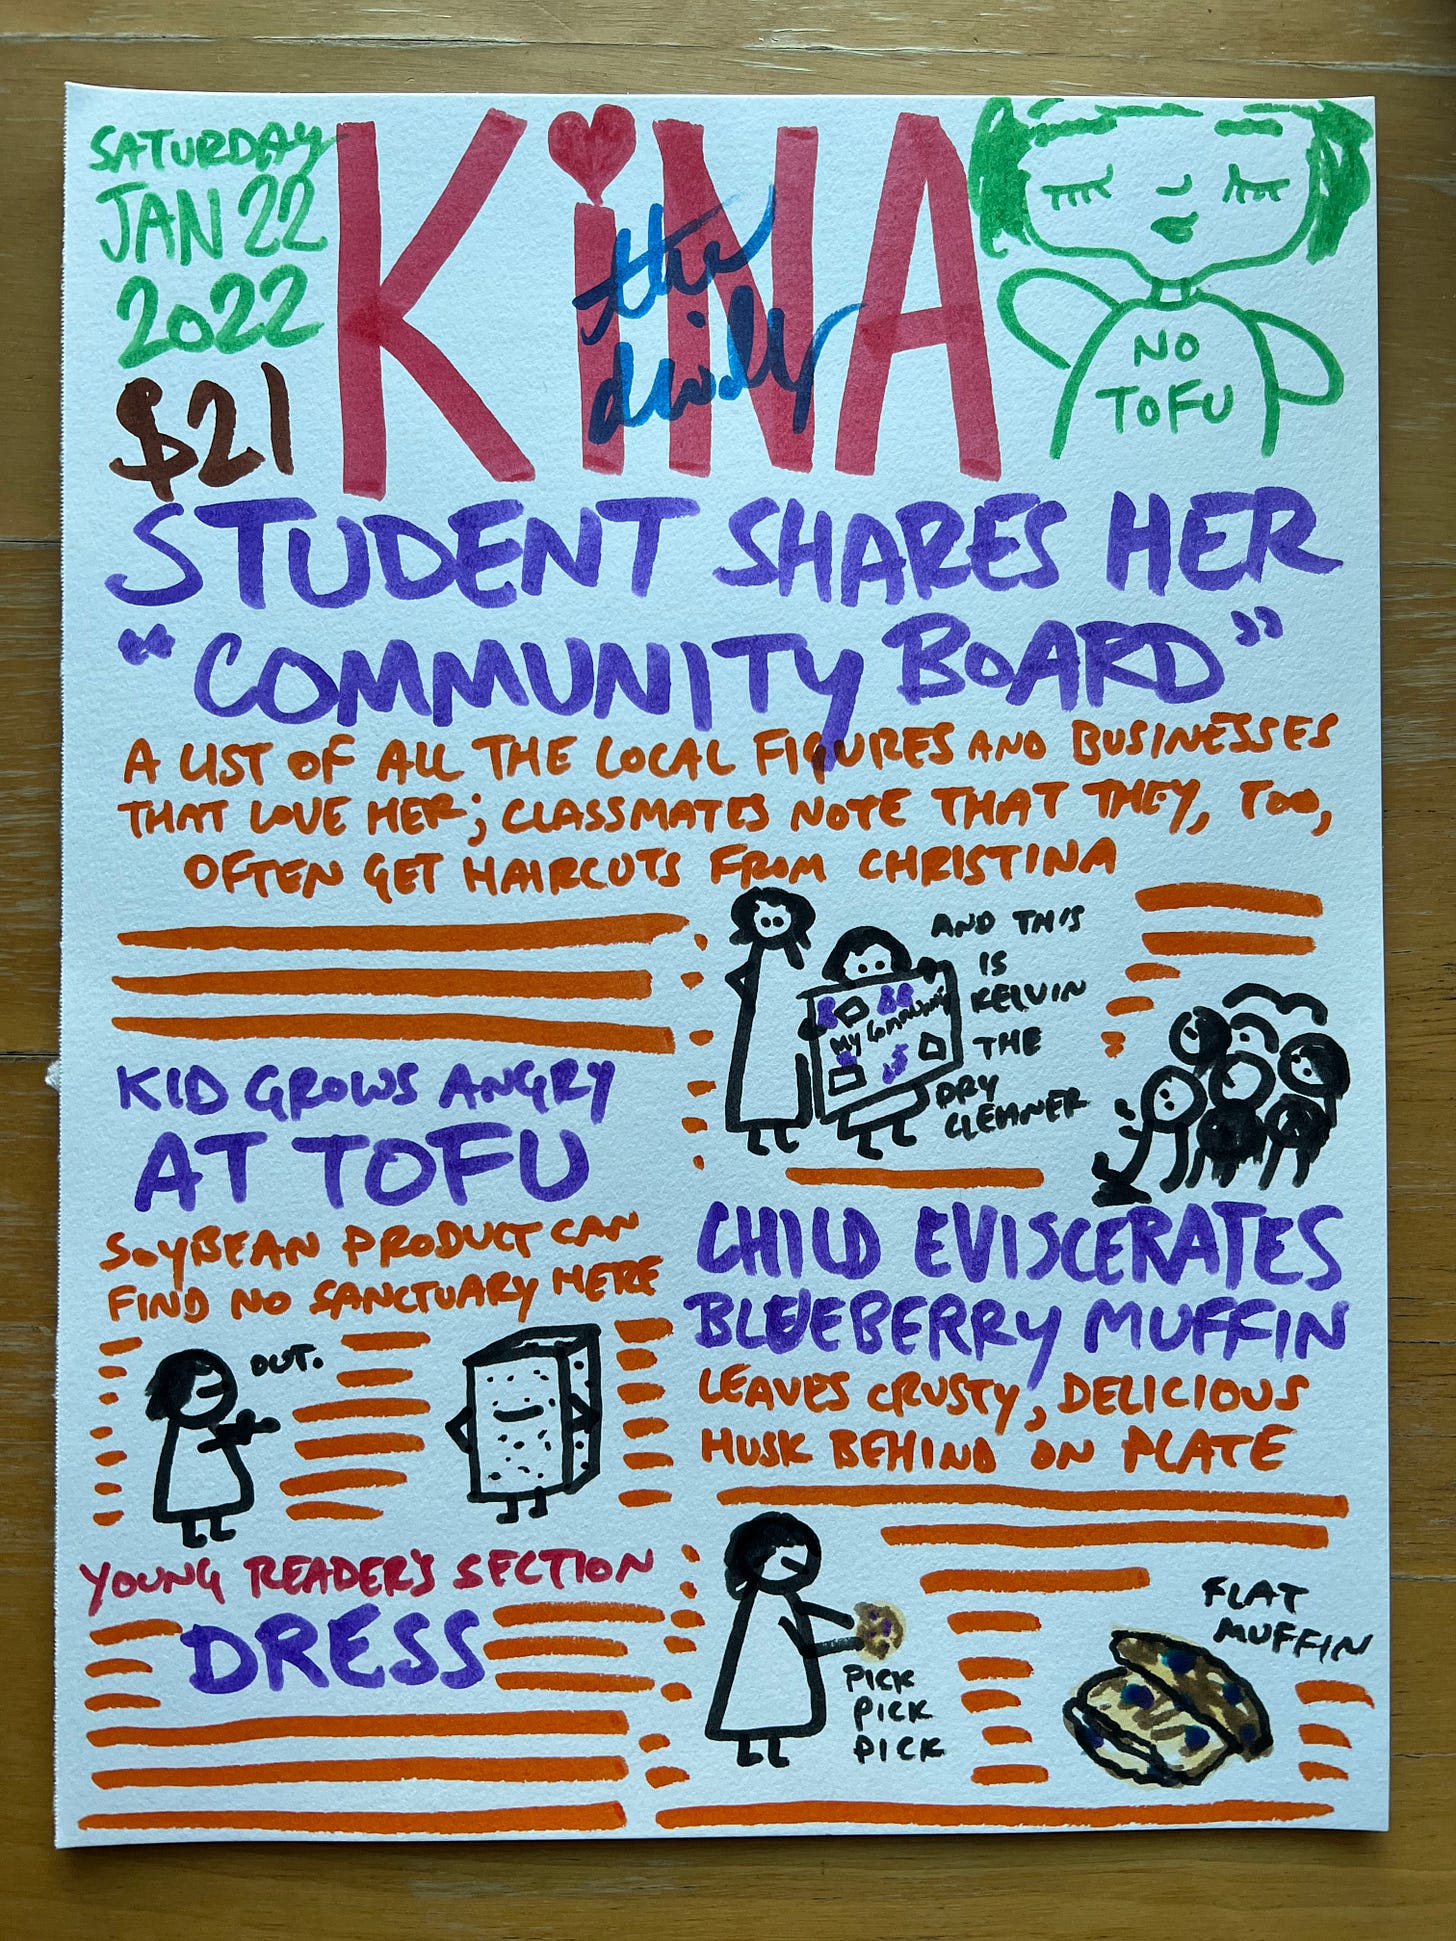 SATURDAY
JAN 22
2022
$21
KiNA
the
daily
NO
TOFU
STUDENT SHARES HER
"COMMUNITY BOARD"
A LIST OF ALL THE LOCAL FIGURES AND BUSINESSES
THAT LOVE HER; CLASSMATES NOTE THAT THEY, TOO,
OFTEN GET HAIRCUTS FROM CHRISTINA
MY COMMUNITY
AND THIS
IS
KELVIN
THE
DRY
CLEANER
KID GROWS ANGRY
AT TOFU
SOYBEAN PRODUCT CAN
FIND NO SANCTUARY HERE
OUT.
YOUNG READER'S SECTION
DRESS
CHILD EVISCERATES
BLUEBERRY MUFFIN
LEAVES CRUSTY, DELICIOUS
HUSK BEHIND ON PLATE
PICK
PICK
PICK
FLAT
MUFFIN